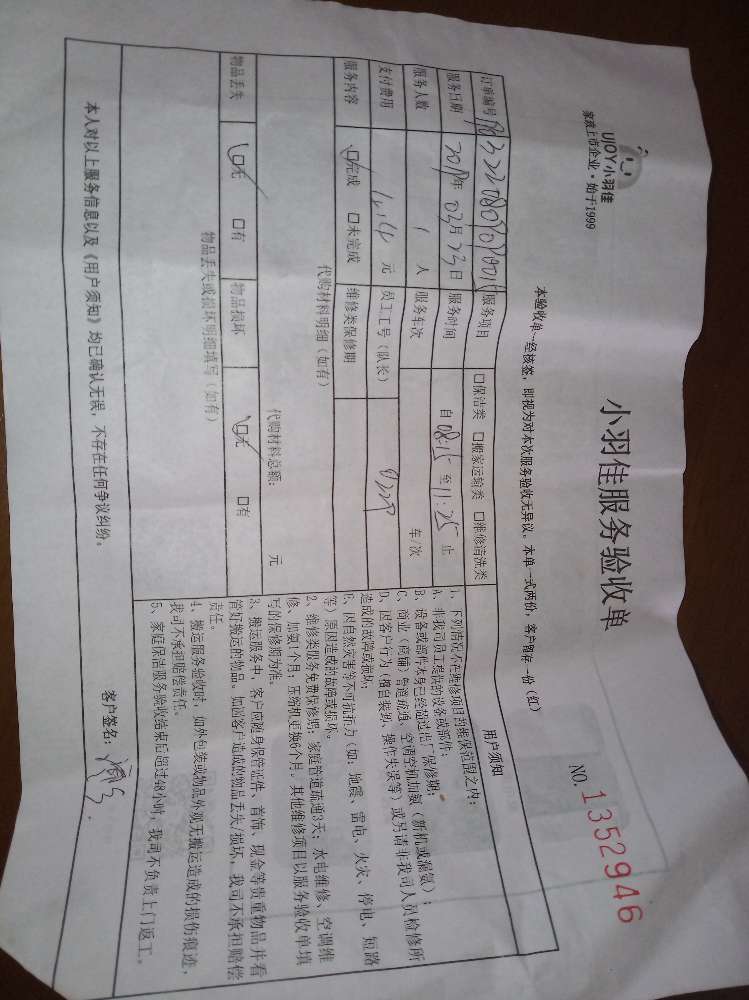 UJOY小羽佳
家政上市企业·始于1999
小羽佳服务验收单
NO. 1352946
本验收单一经核签，即视为对本次服务验收无异议。本单一式两份，客户留存一份（红）
订单编号
服务项目 □保洁类 □搬家运输类 □维修清洗类
服务日期 2019年03月23日 服务时间 自08:15至11:25止
服务人数 1 人 服务车次 车/次
支付费用 元 员工工号（队长）
服务内容 ☑完成 □未完成 维修类保修期
代购材料明细（如有）
代购材料总额： 元
物品丢失 ☑无 □有 物品损坏 ☑无 □有
物品丢失或损坏明细填写（如有）
用户须知
1、下列情况不在维修项目的维保范围之内：
A、非我司员工提供的设备或部件；
B、设备或部件本身已经超过出厂保修期；
C、商业（店铺）管道疏通、空调空机加氨（新机或漏氨）；
D、因客户行为（擅自装卸、操作失误等）或另请非我司人员检修所
造成的故障或损坏；
E、因自然灾害等不可抗拒力（如：地震、雷电、火灾、停电、短路
等）原因造成的故障或损坏。
2、维修类服务免费保修期：家庭管道疏通3天；水电维修、空调维
修、加氨1个月；压缩机更换6个月。其他维修项目以服务验收单填
写的保修期为准。
3、搬运服务中，客户应随身保管证件、首饰、现金等贵重物品并看
管好搬运的物品。如因客户造成的物品丢失/损坏，我司不承担赔偿
责任。
4、搬运服务验收时，如外包装或物品外观无搬运造成的损伤痕迹，
我司不承担赔偿责任。
5、家庭保洁服务验收结束后超过48小时，我司不负责上门返工。
本人对以上服务信息以及《用户须知》均已确认无误，不存在任何争议纠纷。
客户签名：